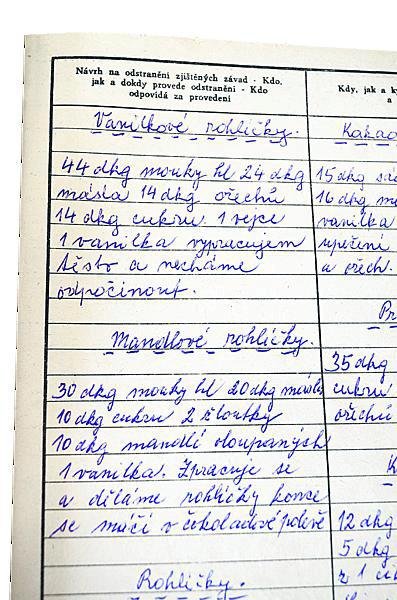 Návrh na odstranění zjištěných závad - Kdo,
jak a dokdy provede odstranění - Kdo
odpovídá za provedení
Vanilkové rohlíčky.
44 dkg mouky hl 24 dkg
másla 14 dkg ořechů
14 dkg cukru 1 vejce
1 vanilka vypracujem
těsto a necháme
odpočinout.
Mandlové rohlíčky.
30 dkg mouky hl 20 dkg másla
10 dkg cukru 2 žloutky
10 dkg mandlí oloupaných
1 vanilka. Zpracuje se
a děláme rohlíčky konce
se máčí v čokoládové polevě
Rohlíčky.
Kdy, jak a
a
Kakao
15 dkg
16 dkg
vanilka
upečení
a ořech.
35 dkg
cukru
ořechů
12 dkg
5 dkg
z 1